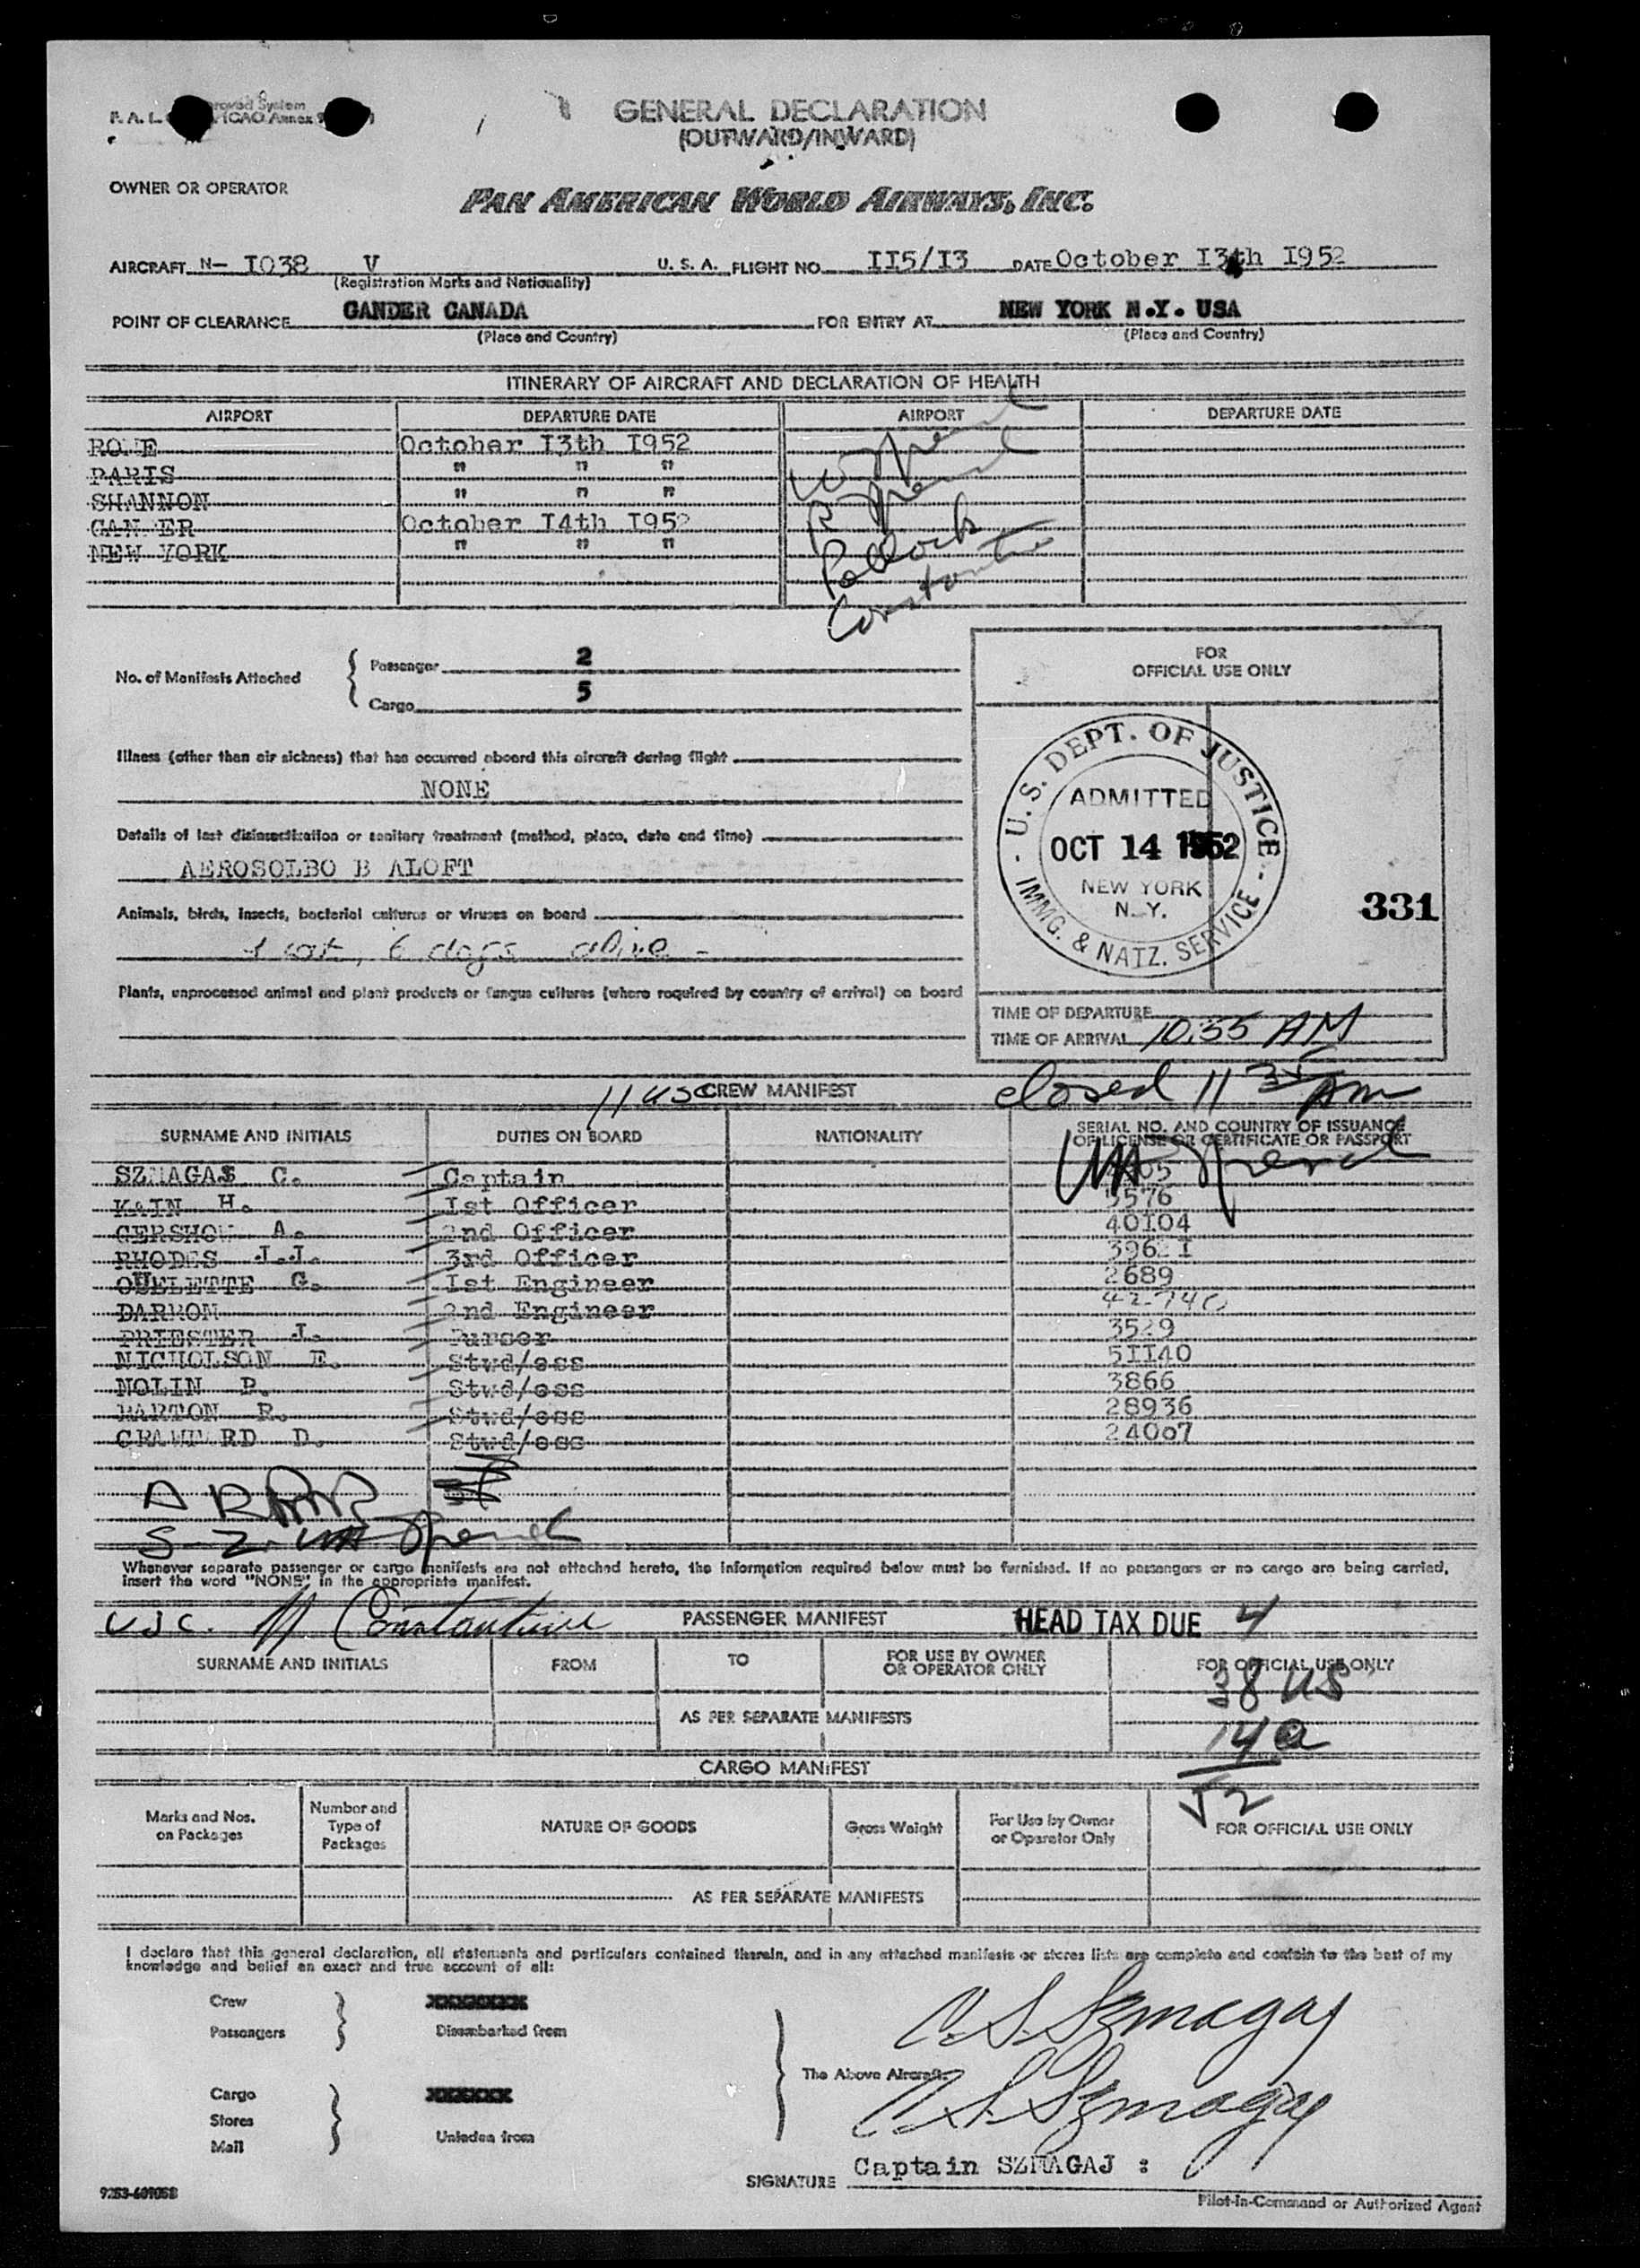 GENERAL DECLARATION
(OUTWARD/INWARD)
OWNER OR OPERATOR
PAN AMERICAN WORLD AIRWAYS, INC.
AIRCRAFT N- I038 V U. S. A. FLIGHT NO. II5/I3 DATE October I3th I952
(Registration Marks and Nationality)
POINT OF CLEARANCE GANDER CANADA FOR ENTRY AT NEW YORK N.Y. USA
(Place and Country) (Place and Country)
ITINERARY OF AIRCRAFT AND DECLARATION OF HEALTH
AIRPORT DEPARTURE DATE AIRPORT DEPARTURE DATE
ROME October I3th I952
PARIS " " "
SHANNON " " "
GANDER October I4th I952
NEW YORK " " "
Pollock
Constantine
No. of Manifests Attached
Passenger 2
Cargo 5
FOR
OFFICIAL USE ONLY
Illness (other than air sickness) that has occurred aboard this aircraft during flight
NONE
Details of last disinsectization or sanitary treatment (method, place, date and time)
AEROSOLBO B ALOFT
Animals, birds, insects, bacterial cultures or viruses on board
1 cat, 6 dogs alive -
Plants, unprocessed animal and plant products or fungus cultures (where required by country of arrival) on board
U.S. DEPT. OF JUSTICE
ADMITTED
OCT 14 1952
NEW YORK
N. Y.
IMMG. & NATZ. SERVICE
331
TIME OF DEPARTURE
TIME OF ARRIVAL 10:55 AM
closed 11 35 AM
11 USC CREW MANIFEST
SURNAME AND INITIALS DUTIES ON BOARD NATIONALITY SERIAL NO. AND COUNTRY OF ISSUANCE
OF LICENSE OR CERTIFICATE OR PASSPORT
SZMAGAS C. Captain
KAIN H. Ist Officer 5576
GERSHOW A. 2nd Officer 40I04
RHODES J.J. 3rd Officer 3962I
OUELETTE G. Ist Engineer 2689
2nd Engineer 42740
PRIESTER J. Purser 3529
NICHOLSON E. Stwd/ess 5II40
NOLIN P. Stwd/ess 3866
BARTON R. Stwd/ess 28936
CRAWFORD D. Stwd/ess 24007
Whenever separate passenger or cargo manifests are not attached hereto, the information required below must be furnished. If no passengers or no cargo are being carried,
insert the word "NONE" in the appropriate manifest.
USC. Constantine PASSENGER MANIFEST HEAD TAX DUE 4
SURNAME AND INITIALS FROM TO FOR USE BY OWNER
OR OPERATOR ONLY FOR OFFICIAL USE ONLY
38 US
AS PER SEPARATE MANIFESTS
14 a
52
CARGO MANIFEST
Marks and Nos.
on Packages
Number and
Type of
Packages
NATURE OF GOODS
Gross Weight
For Use by Owner
or Operator Only
FOR OFFICIAL USE ONLY
AS PER SEPARATE MANIFESTS
I declare that this general declaration, all statements and particulars contained therein, and in any attached manifests or stores lists are complete and contain to the best of my
knowledge and belief an exact and true account of all:
Crew
Passengers Disembarked from
Cargo
Stores
Mail Unladen from
The Above Aircraft:
C. S. Szmagaj
C. S. Szmagaj
SIGNATURE Captain SZMAGAJ :
Pilot-in-Command or Authorized Agent